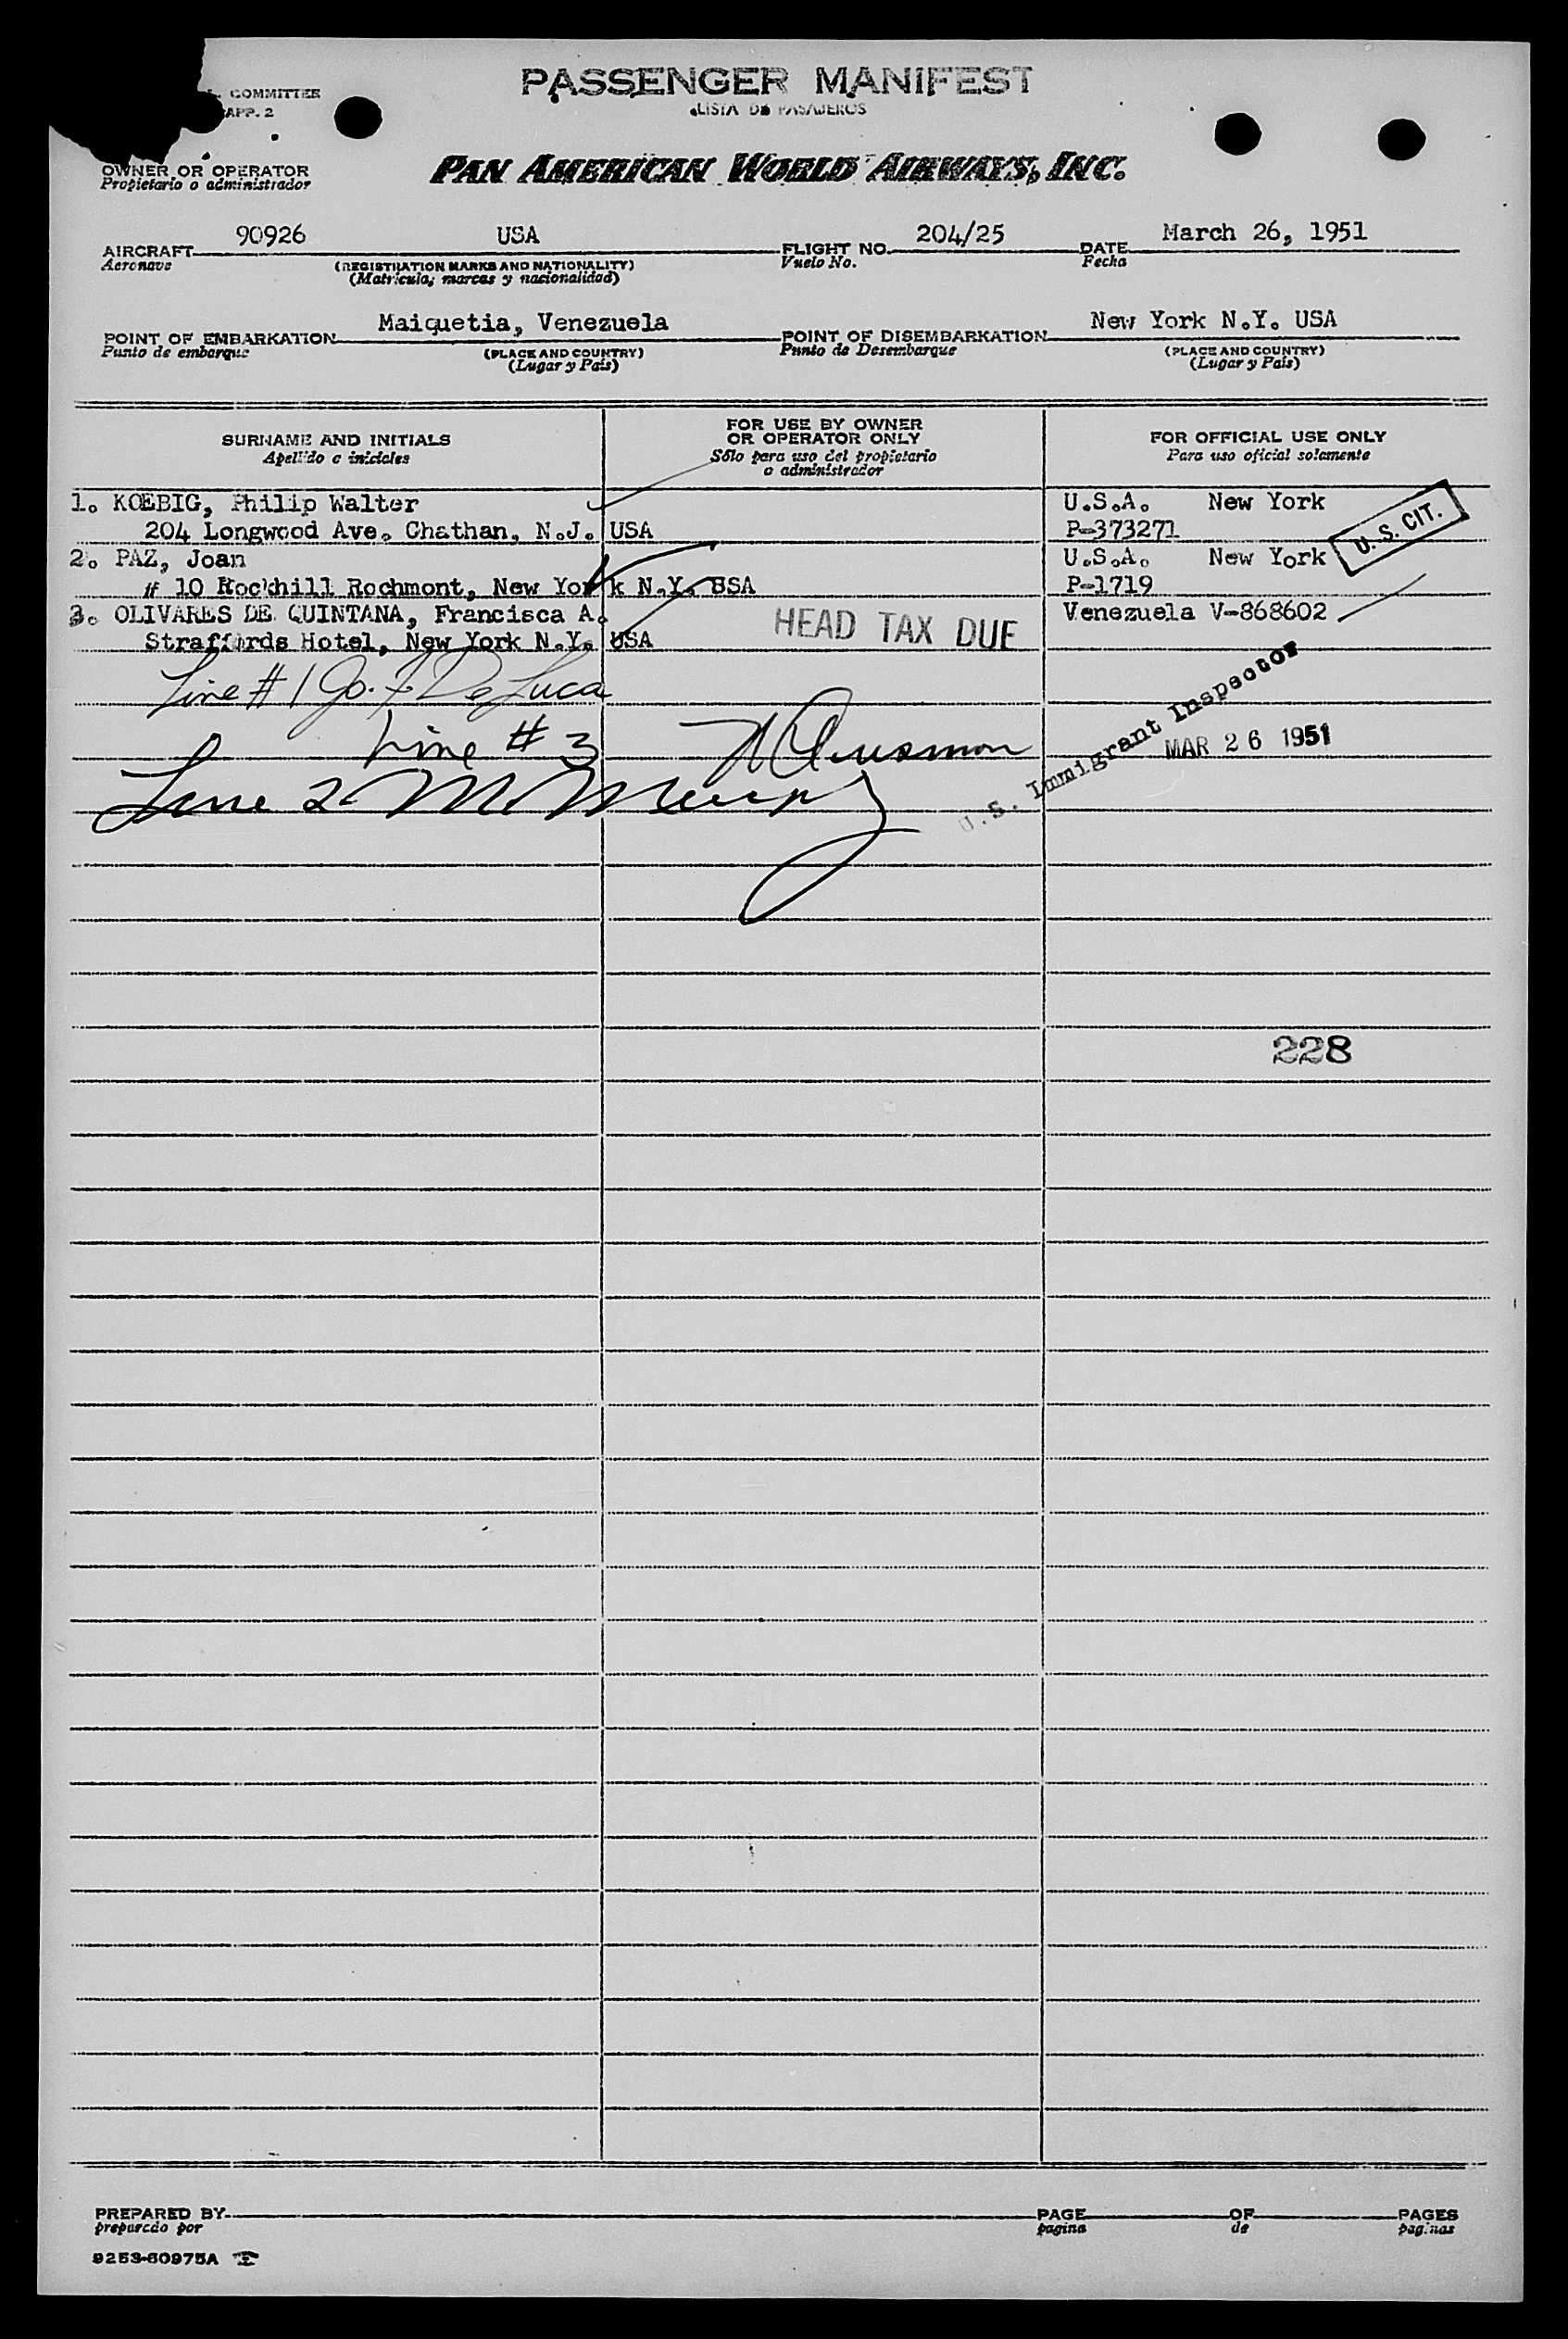 COMMITTEE
APP. 2
PASSENGER MANIFEST
LISTA DE PASAJEROS
OWNER OR OPERATOR
Propietario o administrador
PAN AMERICAN WORLD AIRWAYS, INC.
AIRCRAFT 90926 USA FLIGHT NO. 204/25 DATE March 26, 1951
Aeronave (REGISTRATION MARKS AND NATIONALITY) Vuelo No. Fecha
(Matricula, marcas y nacionalidad)
POINT OF EMBARKATION Maiquetia, Venezuela POINT OF DISEMBARKATION New York N.Y. USA
Punto de embarque (PLACE AND COUNTRY) Punto de Desembarque (PLACE AND COUNTRY)
(Lugar y País) (Lugar y País)
SURNAME AND INITIALS
Apellido e iniciales
FOR USE BY OWNER
OR OPERATOR ONLY
Sólo para uso del propietario
o administrador
FOR OFFICIAL USE ONLY
Para uso oficial solamente
1. KOEBIG, Philip Walter U.S.A. New York
204 Longwood Ave. Chathan, N.J. USA P-373271
U.S. CIT.
2. PAZ, Joan U.S.A. New York
# 10 Rockhill Rochmont, New York N.Y. USA P-1719
3. OLIVARES DE QUINTANA, Francisca A. Venezuela V-868602
Straffords Hotel, New York N.Y. USA
HEAD TAX DUE
Line # 1 Jo. F. DeLuca
Line # 3
Line 2 M Murphy
U.S. Immigrant Inspector
MAR 26 1951
228
PREPARED BY PAGE OF PAGES
preparado por pagina de paginas
9253-60975A